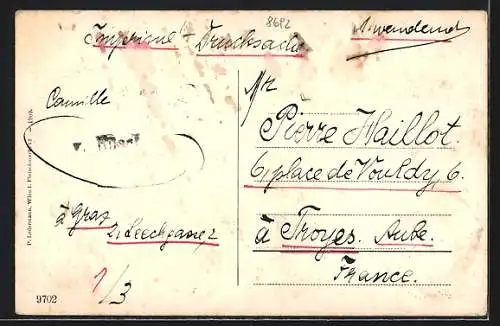 8682
Imprimé - Drucksache
Camille
à Graz
2, Leechgasse, 2
1/3
Mr
Pierre Haillot.
6, place de Vouldy, 6.
à Troyes. Aube.
France.
P. Ledermann, Wien I. Fleischmarkt
9702